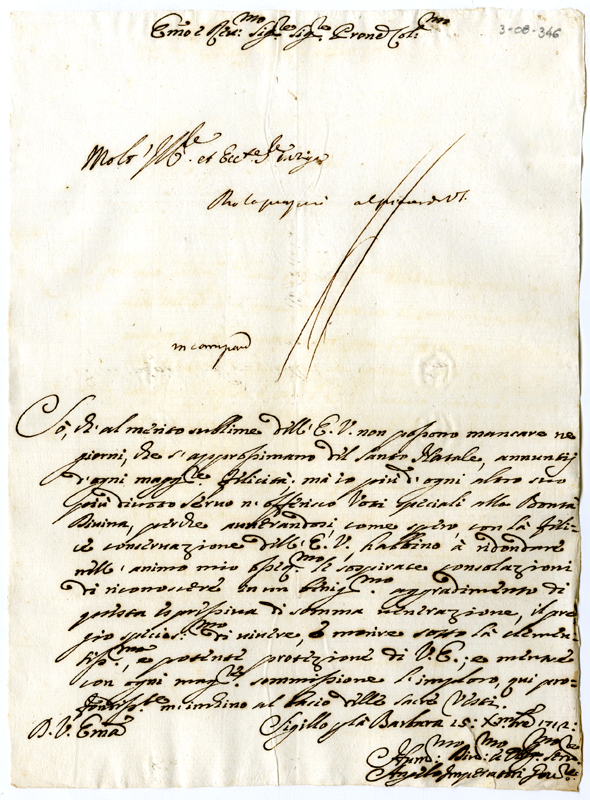 Emo e Red:mo Sigre Sigre Prone Col:mo
3-08-346
Molt' Ill
So, ch' al merito sublime dell' E. V. non possono mancare ne
giorni, che s' approssimano del Santo Natale, annuntij
d' ogni magg.re felicità. ma io più d' ogni altro suo
più divoto servo n' offerisco Voti speciali alla Bontà
Divina, perche auuerandosi, come spero, con la feli-
ce conservazione dell' E. V., habbino à ridondare
nell' animo mio osseq.mo le sospirate consolazioni
di riconoscere in un benig.mo aggradimento di
questa espressiva di somma venerazione, il pre-
gio specios.mo di vivere, e morire sotto la clemen-
tiss.ma, e potente protezione di V. E.; e mentre
con ogni mag.re sommissione l' imploro, qui pro-
fondiss.te m' inchino al bacio delle Sacre Vesti.
D. V. Emza
Sigillo p la Barbara 15: Xmbre 1712:
Hum:mo Div:mo
Angelo Imperatori